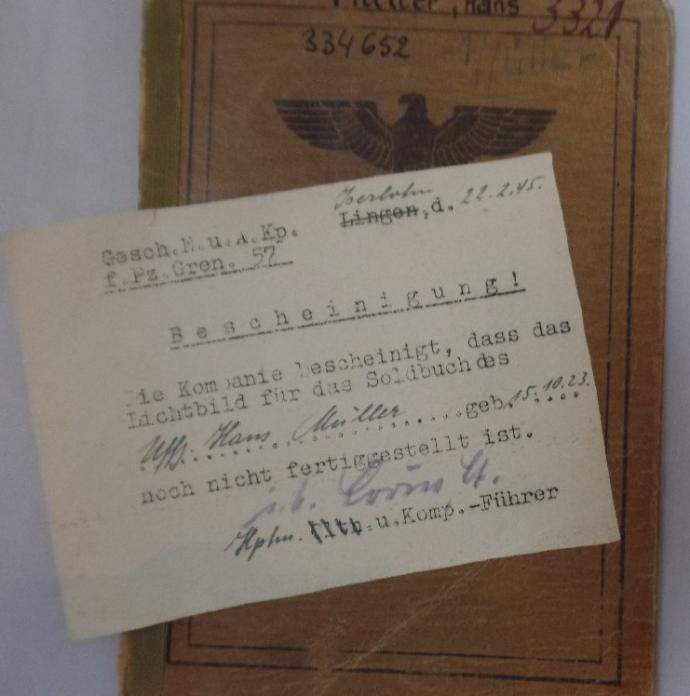 Müller, Hans 3321
334652 Müller
Iserlohn
Lingen, d. 22.2.45.
Gesch.E.u.A.Kp.
f.Pz.Gren. 57
Bescheinigung!
Die Kompanie bescheinigt, dass das
Lichtbild für das Soldbuch des
Uffz. Hans Müller geb. 15.10.23.
noch nicht fertiggestellt ist.
Hptm. u.Komp.-Führer